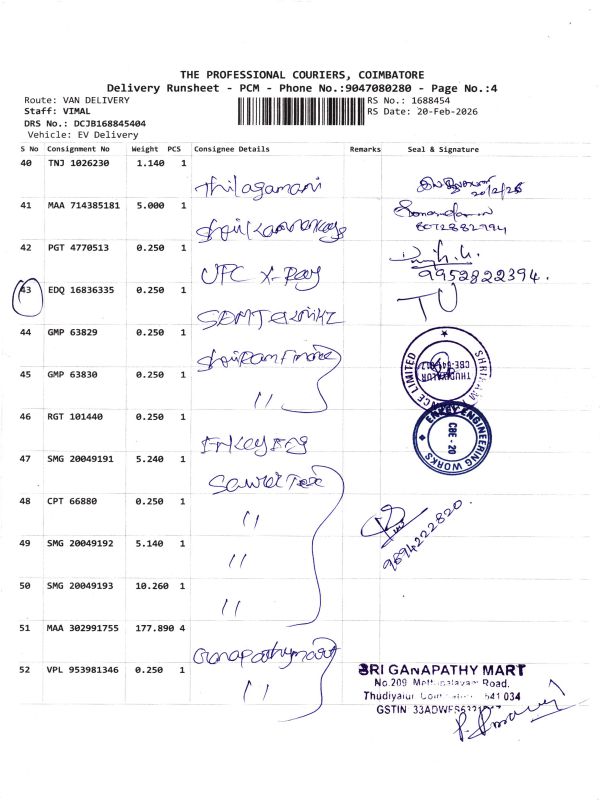 THE PROFESSIONAL COURIERS, COIMBATORE
Delivery Runsheet - PCM - Phone No.:9047080280 - Page No.:4
Route: VAN DELIVERY
RS No.: 1688454
Staff: VIMAL
RS Date: 20-Feb-2026
DRS No.: DCJB168845404
Vehicle: EV Delivery
S No Consignment No Weight PCS Consignee Details Remarks Seal & Signature
40 TNJ 1026230 1.140 1
Thilagamani
20/2/26
41 MAA 714385181 5.000 1
42 PGT 4770513 0.250 1
UFC X-Ray
9952822394.
43 EDQ 16836335 0.250 1
TU
44 GMP 63829 0.250 1
Shriram Finance
SHRIRAM
CE LIMITED
THUDIYALUR
45 GMP 63830 0.250 1
"
46 RGT 101440 0.250 1
Enkey Eng
ENKEY ENGINEERING WORKS
CBE - 20
47 SMG 20049191 5.240 1
48 CPT 66880 0.250 1
"
9894222820.
49 SMG 20049192 5.140 1
"
50 SMG 20049193 10.260 1
"
51 MAA 302991755 177.890 4
Ganapathymart
52 VPL 953981346 0.250 1
"
SRI GANAPATHY MART
No.209 Mettupalayam Road.
Thudiyalur, Coimbatore 641 034
GSTIN